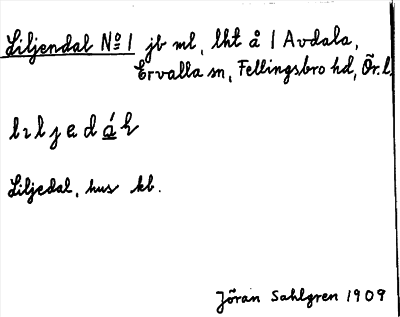 Liljendal Nº 1 jb ml, lht å 1 Avdala,
Ervalla sn, Fellingsbro hd, Ör. l.
Liljedal, hus kb.
Jöran Sahlgren 1909